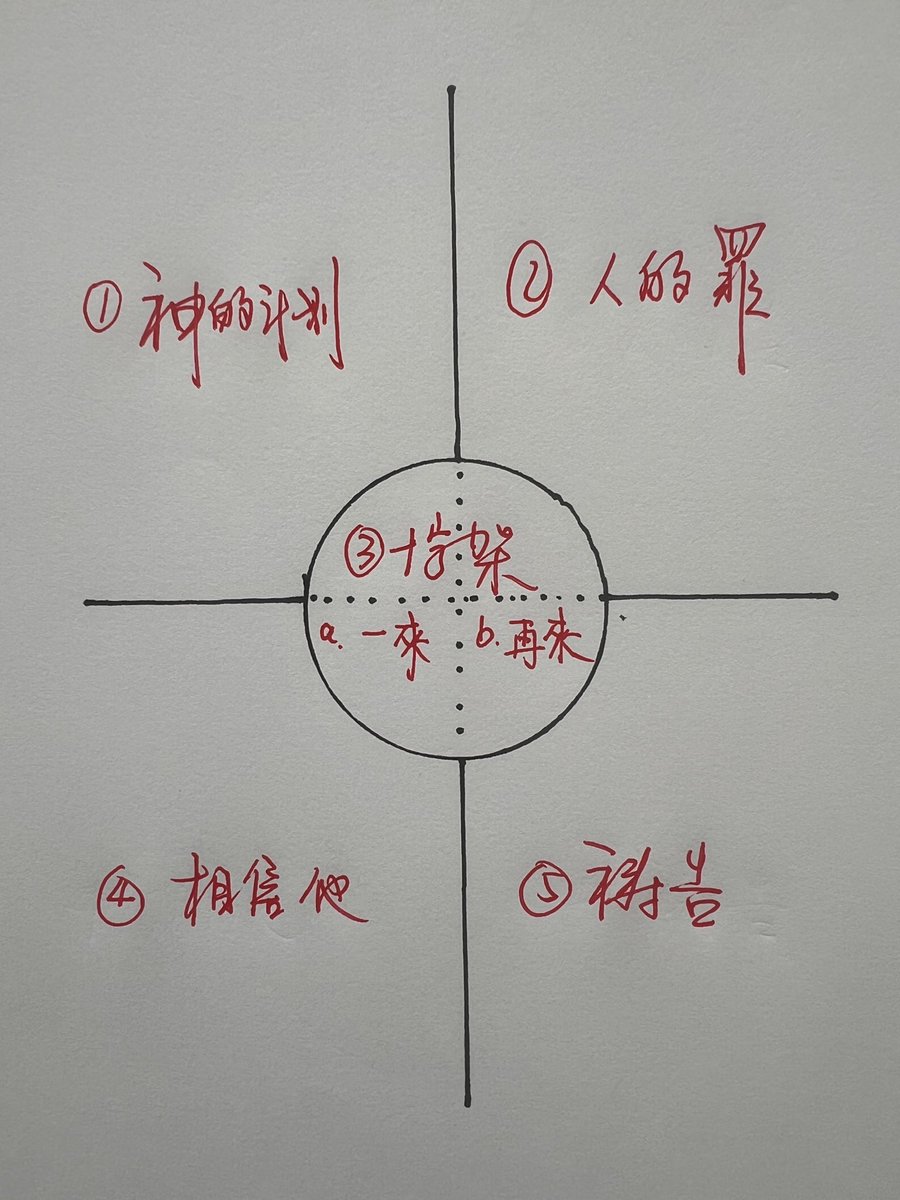 ① 神的计划
② 人的罪
③ 十字架
a. 一來
b. 再來
④ 相信他
⑤ 祷告